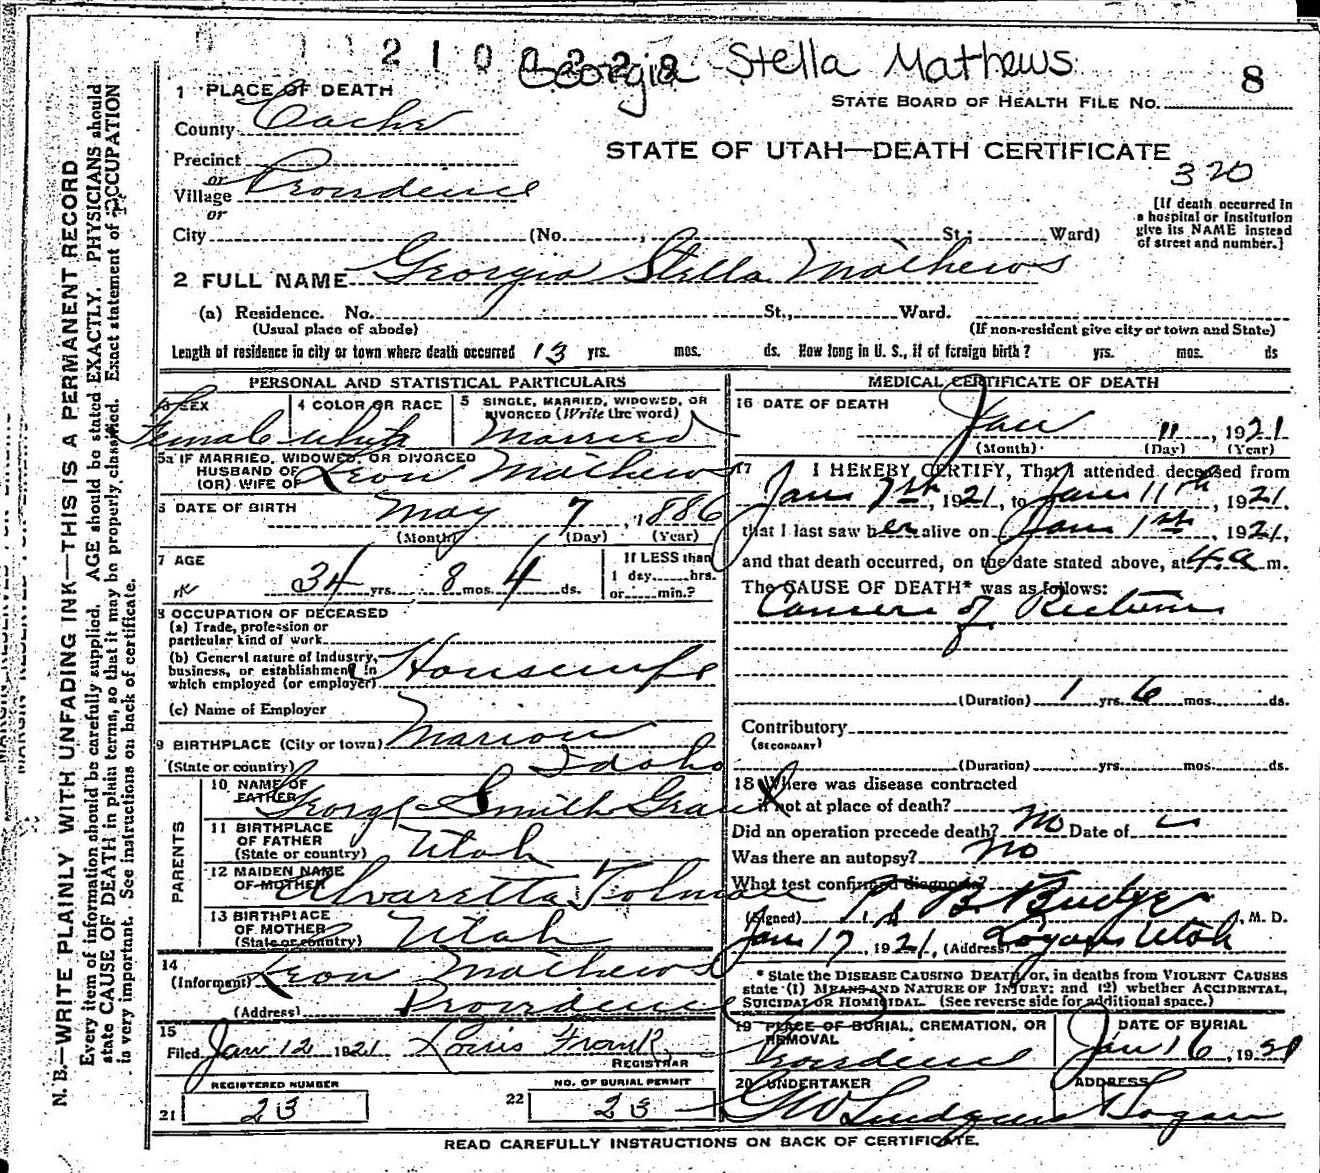 2 1 0 0 2 2 8
Georgia Stella Mathews
8
STATE BOARD OF HEALTH FILE NO.
1 PLACE OF DEATH
County Cache
STATE OF UTAH—DEATH CERTIFICATE
320
Precinct
or
Village Providence
or
City (No. , St; Ward)
[If death occurred in
a hospital or institution
give its NAME instead
of street and number.]
2 FULL NAME Georgia Stella Mathews
(a) Residence. No. St., Ward.
(Usual place of abode) (If non-resident give city or town and State)
Length of residence in city or town where death occurred 13 yrs. mos. ds. How long in U. S., if of foreign birth? yrs. mos. ds
PERSONAL AND STATISTICAL PARTICULARS
3 SEX 4 COLOR OR RACE 5 SINGLE, MARRIED, WIDOWED, OR
DIVORCED (Write the word)
Female White Married
5a IF MARRIED, WIDOWED, OR DIVORCED
HUSBAND OF
(OR) WIFE OF Leon Mathews
6 DATE OF BIRTH May 7, 1886
(Month) (Day) (Year)
7 AGE 34 yrs. 8 mos. 4 ds.
If LESS than
1 day hrs.
or min.?
8 OCCUPATION OF DECEASED
(a) Trade, profession or
particular kind of work
(b) General nature of Industry,
business, or establishment in
which employed (or employer) Housewife
(c) Name of Employer
9 BIRTHPLACE (City or town) Marion
(State or country) Idaho
PARENTS
10 NAME OF
FATHER George Smith Grant
11 BIRTHPLACE
OF FATHER
(State or country) Utah
12 MAIDEN NAME
OF MOTHER Alvaretta Tolman
13 BIRTHPLACE
OF MOTHER
(State or country) Utah
14
(Informant) Leon Mathews
(Address) Providence
15
Filed Jan 12 1921 Louis Frank
REGISTRAR
REGISTERED NUMBER NO. OF BURIAL PERMIT
21 23 22 23
MEDICAL CERTIFICATE OF DEATH
16 DATE OF DEATH
Jan 11, 1921
(Month) (Day) (Year)
17 I HEREBY CERTIFY, That I attended deceased from
Jan 1st, 1921, to Jan 11th, 1921,
that I last saw her alive on Jan 1st, 1921,
and that death occurred, on the date stated above, at 4 a m.
The CAUSE OF DEATH* was as follows:
Cancer of Rectum
(Duration) 1 yrs. 6 mos. ds.
Contributory
(SECONDARY)
(Duration) yrs. mos. ds.
18 Where was disease contracted
if not at place of death?
Did an operation precede death? No Date of
Was there an autopsy? No
What test confirmed diagnosis?
(Signed) Budge, M. D.
Jan 17, 1921, (Address) Logan Utah
* State the DISEASE CAUSING DEATH, or, in deaths from VIOLENT CAUSES
state (1) MEANS AND NATURE OF INJURY; and (2) whether ACCIDENTAL,
SUICIDAL OR HOMICIDAL. (See reverse side for additional space.)
19 PLACE OF BURIAL, CREMATION, OR
REMOVAL
Providence
DATE OF BURIAL
Jan 16, 1921
20 UNDERTAKER ADDRESS
G W Lindquist Logan
READ CAREFULLY INSTRUCTIONS ON BACK OF CERTIFICATE.
N. B.—WRITE PLAINLY WITH UNFADING INK—THIS IS A PERMANENT RECORD
Every item of information should be carefully supplied. AGE should be stated EXACTLY. PHYSICIANS should
state CAUSE OF DEATH in plain terms, so that it may be properly classified. Exact statement of OCCUPATION
is very important. See instructions on back of certificate.